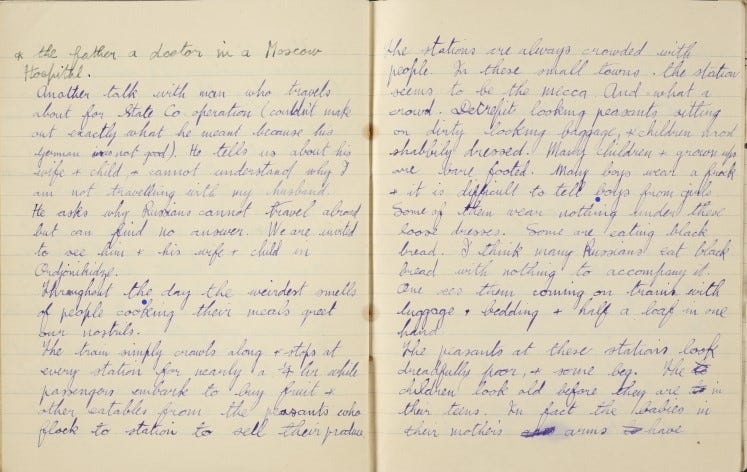 * the father a doctor in a Moscow
Hospital.
Another talk with man who travels
about for State Co. operation (couldn't make
out exactly what he meant because his
German was not good). He tells us about his
wife + child, + cannot understand why I
am not travelling with my husband.
He asks why Russians cannot travel abroad
but can find no answer. We are invited
to see him + his wife + child in
Ordjonikidze.
Throughout the day the weirdest smells
of people cooking their meals greet
our nostrils.
The train simply crawls along + stops at
every station for nearly a ¼ hr while
passengers embark to buy fruit +
other eatables from the peasants who
flock to station to sell their produce
the stations are always crowded with
people. In these small towns, the station
seems to be the micca. And what a
crowd. Decrepit looking peasants sitting
on dirty looking baggage, + children most
shabbily dressed. Many children + grown ups
are bare footed. Many boys wear a frock
+ it is difficult to tell boys from girls
Some of them wear nothing under these
loose dresses. Some are eating black
bread. I think many Russians eat black
bread with nothing to accompany it.
One sees them coming on trains with
luggage + bedding + half a loaf in one
hand.
The peasants at these stations look
dreadfully poor, + some beg. The
children look old before they are in
their teens. In fact the babies in
their mother's arms have